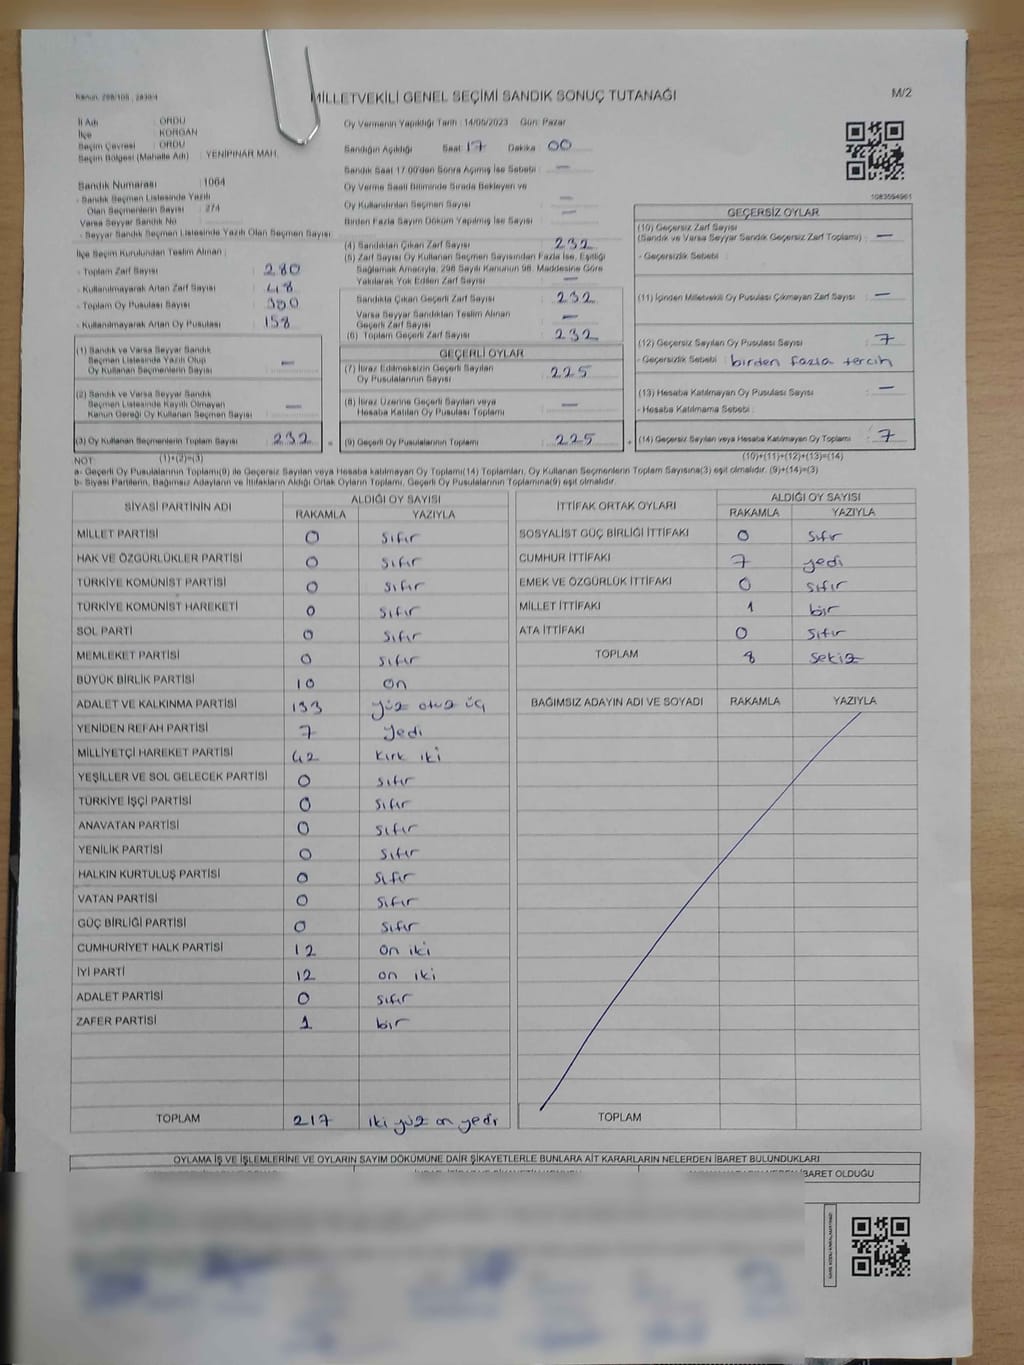 Kanun: 298/105 , 2839/4
MİLLETVEKİLİ GENEL SEÇİMİ SANDIK SONUÇ TUTANAĞI
M/2
İl Adı : ORDU
İlçe : KORGAN
Seçim Çevresi : ORDU
Seçim Bölgesi (Mahalle Adı) : YENİPINAR MAH.
Sandık Numarası : 1064
- Sandık Seçmen Listesinde Yazılı
Olan Seçmenlerin Sayısı : 274
Varsa Seyyar Sandık No
- Seyyar Sandık Seçmen Listesinde Yazılı Olan Seçmen Sayısı:
İlçe Seçim Kurulundan Teslim Alınan :
- Toplam Zarf Sayısı : 280
- Kullanılmayarak Artan Zarf Sayısı : 48
- Toplam Oy Pusulası Sayısı :
- Kullanılmayarak Artan Oy Pusulası : 158
(1) Sandık ve Varsa Seyyar Sandık
Seçmen Listesinde Yazılı Olup
Oy Kullanan Seçmenlerin Sayısı : —
(2) Sandık ve Varsa Seyyar Sandık
Seçmen Listesinde Kayıtlı Olmayan
Kanun Gereği Oy Kullanan Seçmen Sayısı : —
(3) Oy Kullanan Seçmenlerin Toplam Sayısı : 232
(1)+(2)=(3)
Oy Vermenin Yapıldığı Tarih : 14/05/2023 Gün: Pazar
Sandığın Açıldığı Saat 17 Dakika : 00
Sandık Saat 17:00'den Sonra Açılmış İse Sebebi : —
Oy Verme Saati Bitiminde Sırada Bekleyen ve
Oy Kullandırılan Seçmen Sayısı : —
Birden Fazla Sayım Döküm Yapılmış İse Sayısı : —
(4) Sandıktan Çıkan Zarf Sayısı : 232
(5) Zarf Sayısı Oy Kullanan Seçmen Sayısından Fazla İse, Eşitliği
Sağlamak Amacıyla, 298 Sayılı Kanunun 98. Maddesine Göre
Yakılarak Yok Edilen Zarf Sayısı : —
Sandıkta Çıkan Geçerli Zarf Sayısı : 232
Varsa Seyyar Sandıktan Teslim Alınan
Geçerli Zarf Sayısı : —
(6) Toplam Geçerli Zarf Sayısı : 232
GEÇERLİ OYLAR
(7) İtiraz Edilmeksizin Geçerli Sayılan
Oy Pusulalarının Sayısı : 225
(8) İtiraz Üzerine Geçerli Sayılan veya
Hesaba Katılan Oy Pusulası Toplamı : —
(9) Geçerli Oy Pusulalarının Toplamı : 225
1083594961
GEÇERSİZ OYLAR
(10) Geçersiz Zarf Sayısı
(Sandık ve Varsa Seyyar Sandık Geçersiz Zarf Toplamı) : —
- Geçersizlik Sebebi :
(11) İçinden Milletvekili Oy Pusulası Çıkmayan Zarf Sayısı : —
(12) Geçersiz Sayılan Oy Pusulası Sayısı : 7
- Geçersizlik Sebebi : birden fazla tercih
(13) Hesaba Katılmayan Oy Pusulası Sayısı : —
- Hesaba Katılmama Sebebi :
(14) Geçersiz Sayılan veya Hesaba Katılmayan Oy Toplamı : 7
(10)+(11)+(12)+(13)=(14)
NOT:
a- Geçerli Oy Pusulalarının Toplamı(9) ile Geçersiz Sayılan veya Hesaba katılmayan Oy Toplamı(14) Toplamları, Oy Kullanan Seçmenlerin Toplam Sayısına(3) eşit olmalıdır. (9)+(14)=(3)
b- Siyasi Partilerin, Bağımsız Adayların ve İttifakların Aldığı Ortak Oyların Toplamı, Geçerli Oy Pusulalarının Toplamına(9) eşit olmalıdır.
SİYASİ PARTİNİN ADI ALDIĞI OY SAYISI
RAKAMLA YAZIYLA
MİLLET PARTİSİ 0 sıfır
HAK VE ÖZGÜRLÜKLER PARTİSİ 0 sıfır
TÜRKİYE KOMÜNİST PARTİSİ 0 sıfır
TÜRKİYE KOMÜNİST HAREKETİ 0 sıfır
SOL PARTİ 0 sıfır
MEMLEKET PARTİSİ 0 sıfır
BÜYÜK BİRLİK PARTİSİ 10 on
ADALET VE KALKINMA PARTİSİ 133 yüz otuz üç
YENİDEN REFAH PARTİSİ 7 yedi
MİLLİYETÇİ HAREKET PARTİSİ 42 kırk iki
YEŞİLLER VE SOL GELECEK PARTİSİ 0 sıfır
TÜRKİYE İŞÇİ PARTİSİ 0 sıfır
ANAVATAN PARTİSİ 0 sıfır
YENİLİK PARTİSİ 0 sıfır
HALKIN KURTULUŞ PARTİSİ 0 sıfır
VATAN PARTİSİ 0 sıfır
GÜÇ BİRLİĞİ PARTİSİ 0 sıfır
CUMHURİYET HALK PARTİSİ 12 on iki
İYİ PARTİ 12 on iki
ADALET PARTİSİ 0 sıfır
ZAFER PARTİSİ 1 bir
TOPLAM 217 iki yüz on yedi
İTTİFAK ORTAK OYLARI ALDIĞI OY SAYISI
RAKAMLA YAZIYLA
SOSYALİST GÜÇ BİRLİĞİ İTTİFAKI 0 sıfır
CUMHUR İTTİFAKI 7 yedi
EMEK VE ÖZGÜRLÜK İTTİFAKI 0 sıfır
MİLLET İTTİFAKI 1 bir
ATA İTTİFAKI 0 sıfır
TOPLAM 8 sekiz
BAĞIMSIZ ADAYIN ADI VE SOYADI RAKAMLA YAZIYLA
TOPLAM
OYLAMA İŞ VE İŞLEMLERİNE VE OYLARIN SAYIM DÖKÜMÜNE DAİR ŞİKAYETLERLE BUNLARA AİT KARARLARIN NELERDEN İBARET BULUNDUKLARI
İBARET OLDUĞU